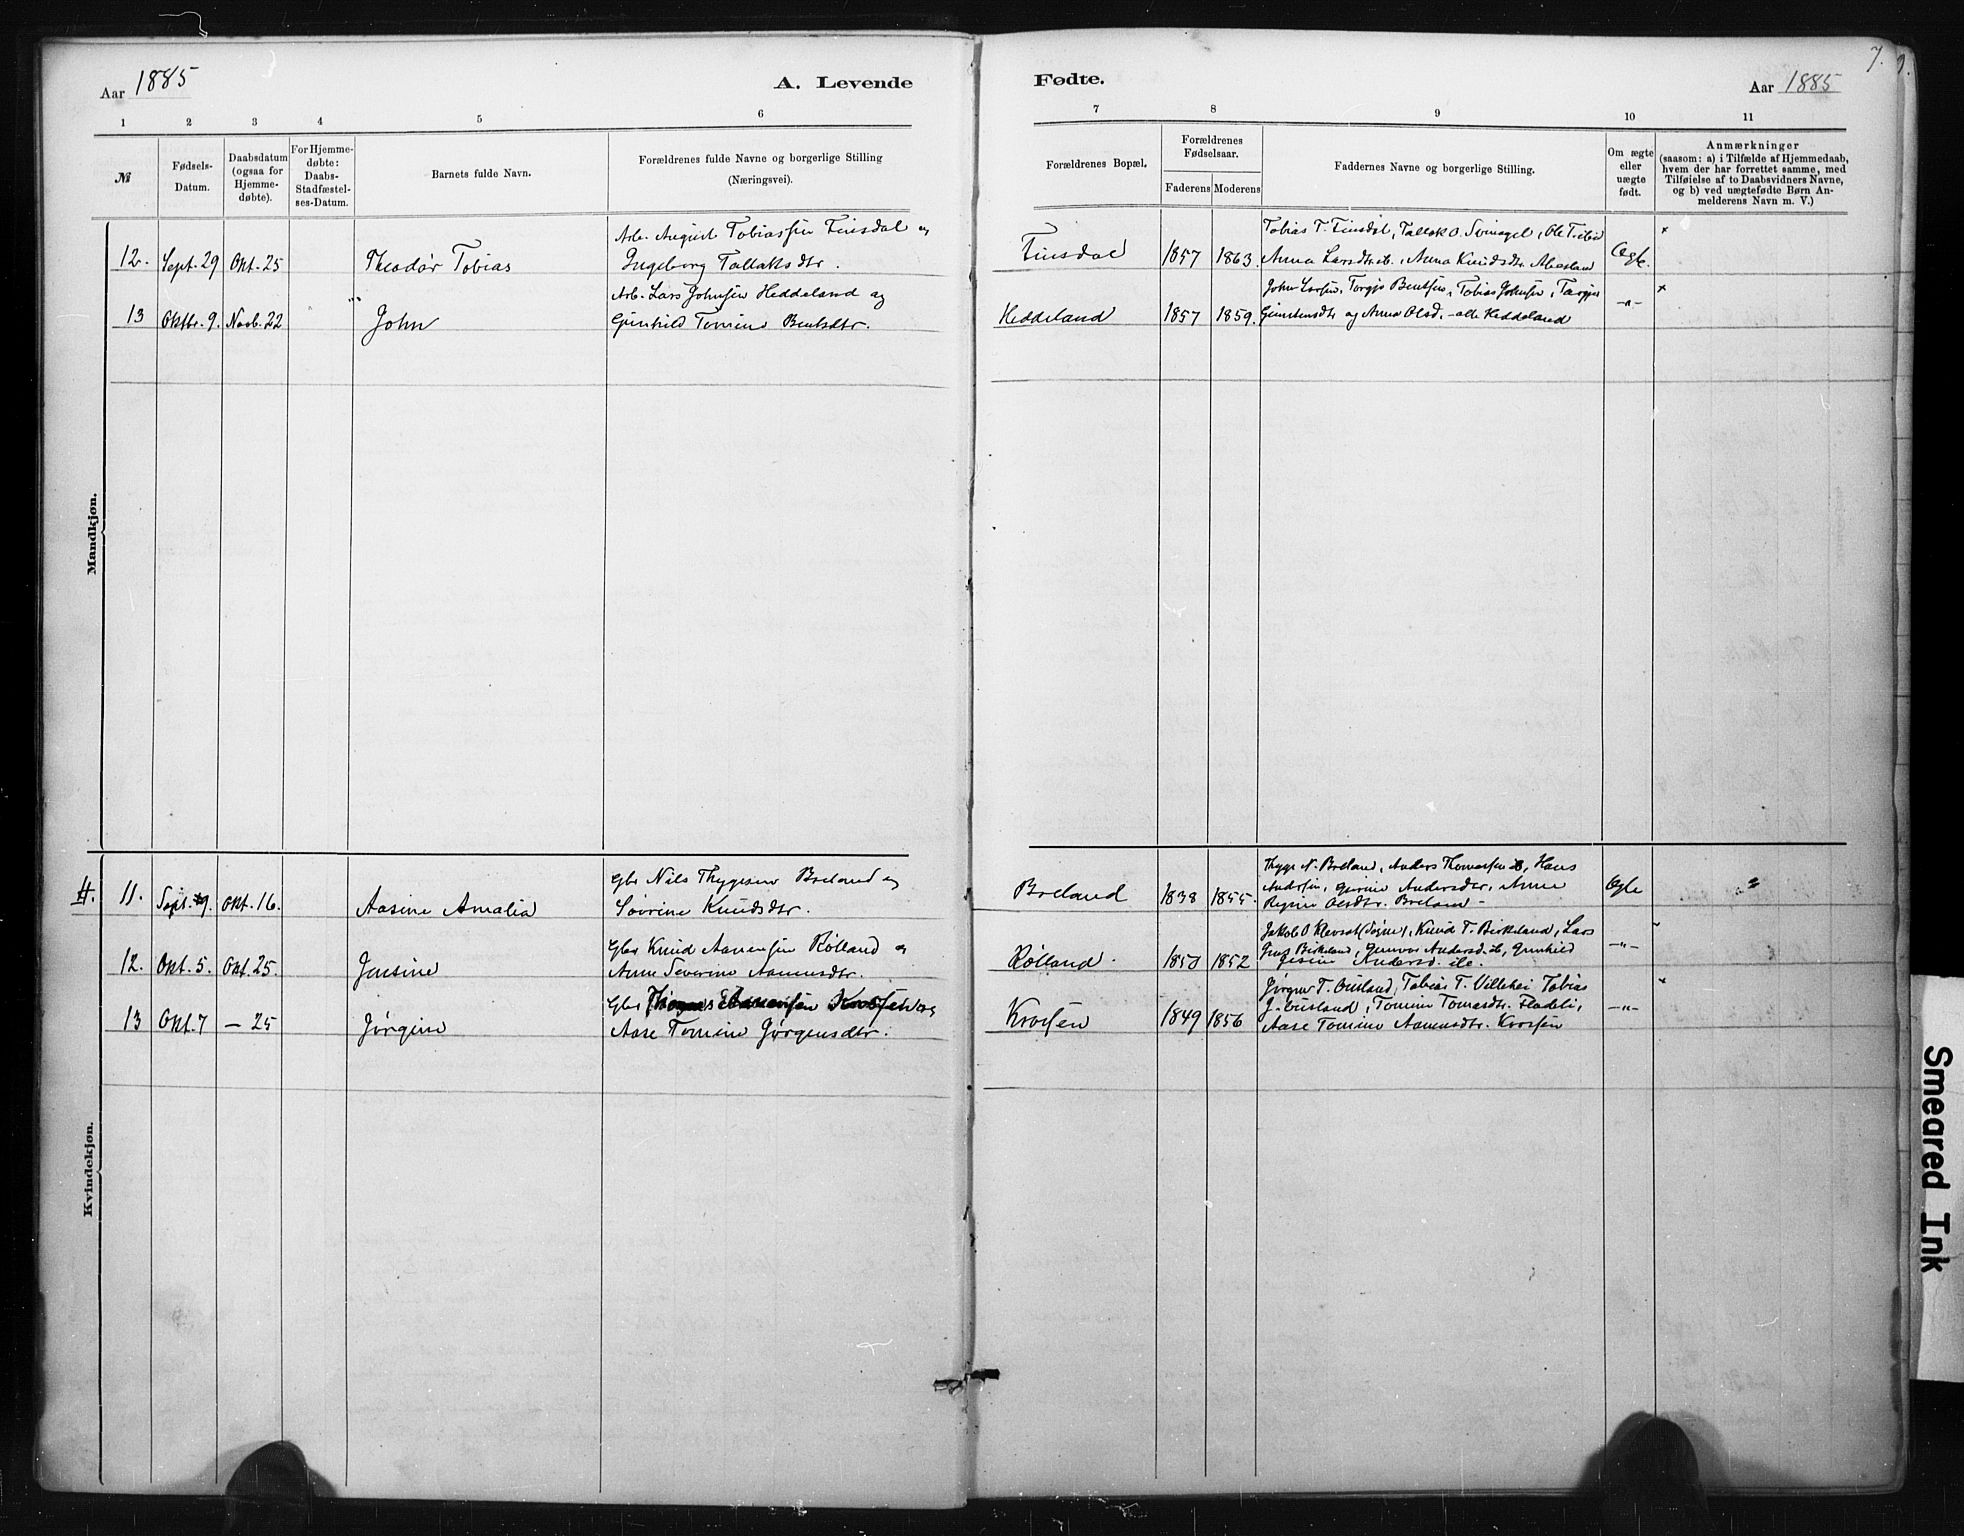 Aar 1885
A. Levende
Fødte.
Aar 1885
7.
1 2 3 4 5 6 7 8 9 10 11
№
Fødsels-
Datum.
Daabsdatum
(ogsaa for
Hjemme-
døbte).
For Hjemme-
døbte:
Daabs-
Stadfæstel-
ses-Datum.
Barnets fulde Navn.
Forældrenes fulde Navne og borgerlige Stilling
(Næringsvei).
Forældrenes Bopæl.
Forældrenes
Fødselsaar.
Faderens Moderens
Faddernes Navne og borgerlige Stilling.
Om ægte
eller
uægte
født.
Anmærkninger
(saasom: a) i Tilfælde af Hjemmedaab,
hvem der har forrettet samme, med
Tilføielse af to Daabsvidners Navne,
og b) ved uægtefødte Børn An-
melderens Navn m. V.)
Mandkjøn.
12. Sept. 29 Okt. 25 Theodor Tobias
Arb. August Tobiassen Finsdal og
Ingeborg Tallaksdtr.
Finsdal 1857 1863.
Tobias T. Finsdal, Tallak O. ... Ole
Anna Larsdtr. ib., Anna Knudsdtr.
Ægte.
13 Oktbr. 9. Novb. 22 John
Arb. Lars Johnsen Heddeland og
Gunhild Tomine Bentsdtr.
Heddeland 1857 1859.
John Larsen, Torgje Bentsen, Tobias Johnsen,
og Anna Olsd. - alle Heddeland
-"-
Kvindekjøn.
11. Sept. 9. Okt. 16. Aasine Amalia
Gbr Nils Thygesen Breland og
Sørine Knudsdtr.
Breland 1838 1855.
Thyge N. Breland, Anders Thomassen ib, Hans
Andersen, Andersdtr., Anne
Olsdtr. Breland -
Ægte
12. Okt. 5. Okt. 25. Jensine
Gbr Knud Aanensen Rølland og
Anne Severine Aanensdtr.
Rølland. 1852
Jakob O Klevset (Søgne), Knud T. Birkeland, Lars
Birkeland, Gunvor Andersd. ib, Gunhild
Andersd. ib.
-"-
13 Okt. 7 - 25 Jørgine
Gbr Krossen og
Aase Tomine Jørgensdtr.
Krossen 1849 1856
Jørgen T. Øvsland, Tobias T. Tobias
J. Øvsland, Tomine Tomasdtr.
Aase Tomine Aanensdtr. Krossen
-"-
Smeared Ink